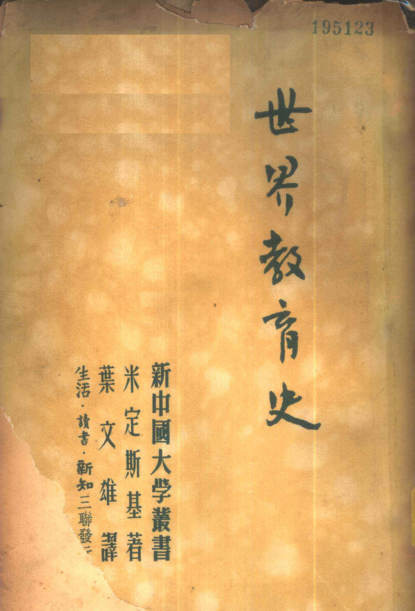 195123
世界教育史
新中國大学叢書
米定斯基著
葉文雄譯
生活·讀書·新知三聯發